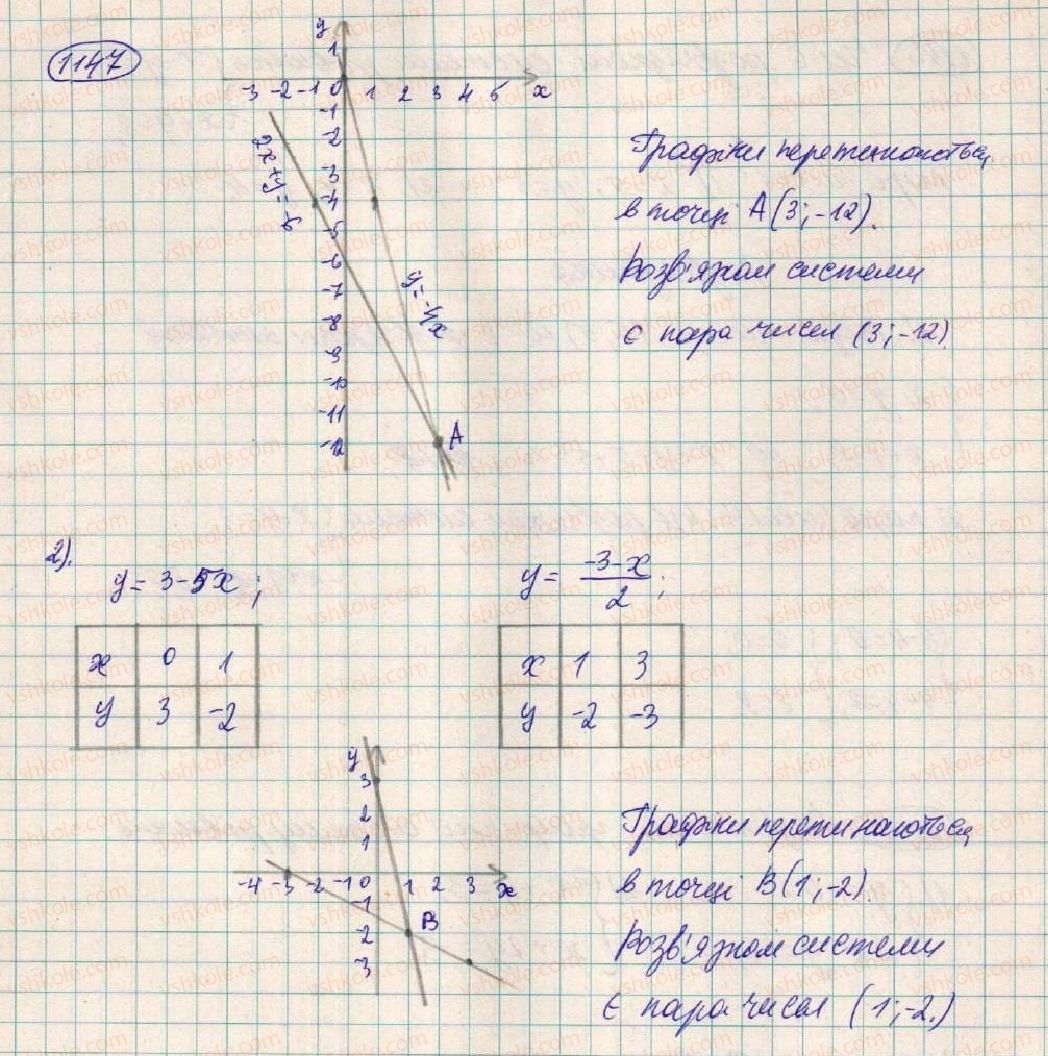 1147
y
1
-3 -2 -1 0 1 2 3 4 5 x
-1
-2
-3
-4
-5
-6
-7
-8
-9
-10
-11
-12
2x+y=-6
y=-4x
A
Графіки перетинаються
в точці A(3;-12).
Розв'язком системи
є пара чисел (3;-12).
2).
y = 3-5x;
x 0 1
y 3 -2
y = -3-x / 2;
x 1 3
y -2 -3
y
3
2
1
-4 -3 -2 -1 0 1 2 3 x
-1
-2
-3
B
Графіки перетинаються
в точці B(1;-2).
Розв'язком системи
є пара чисел (1;-2.)
vshkole.com